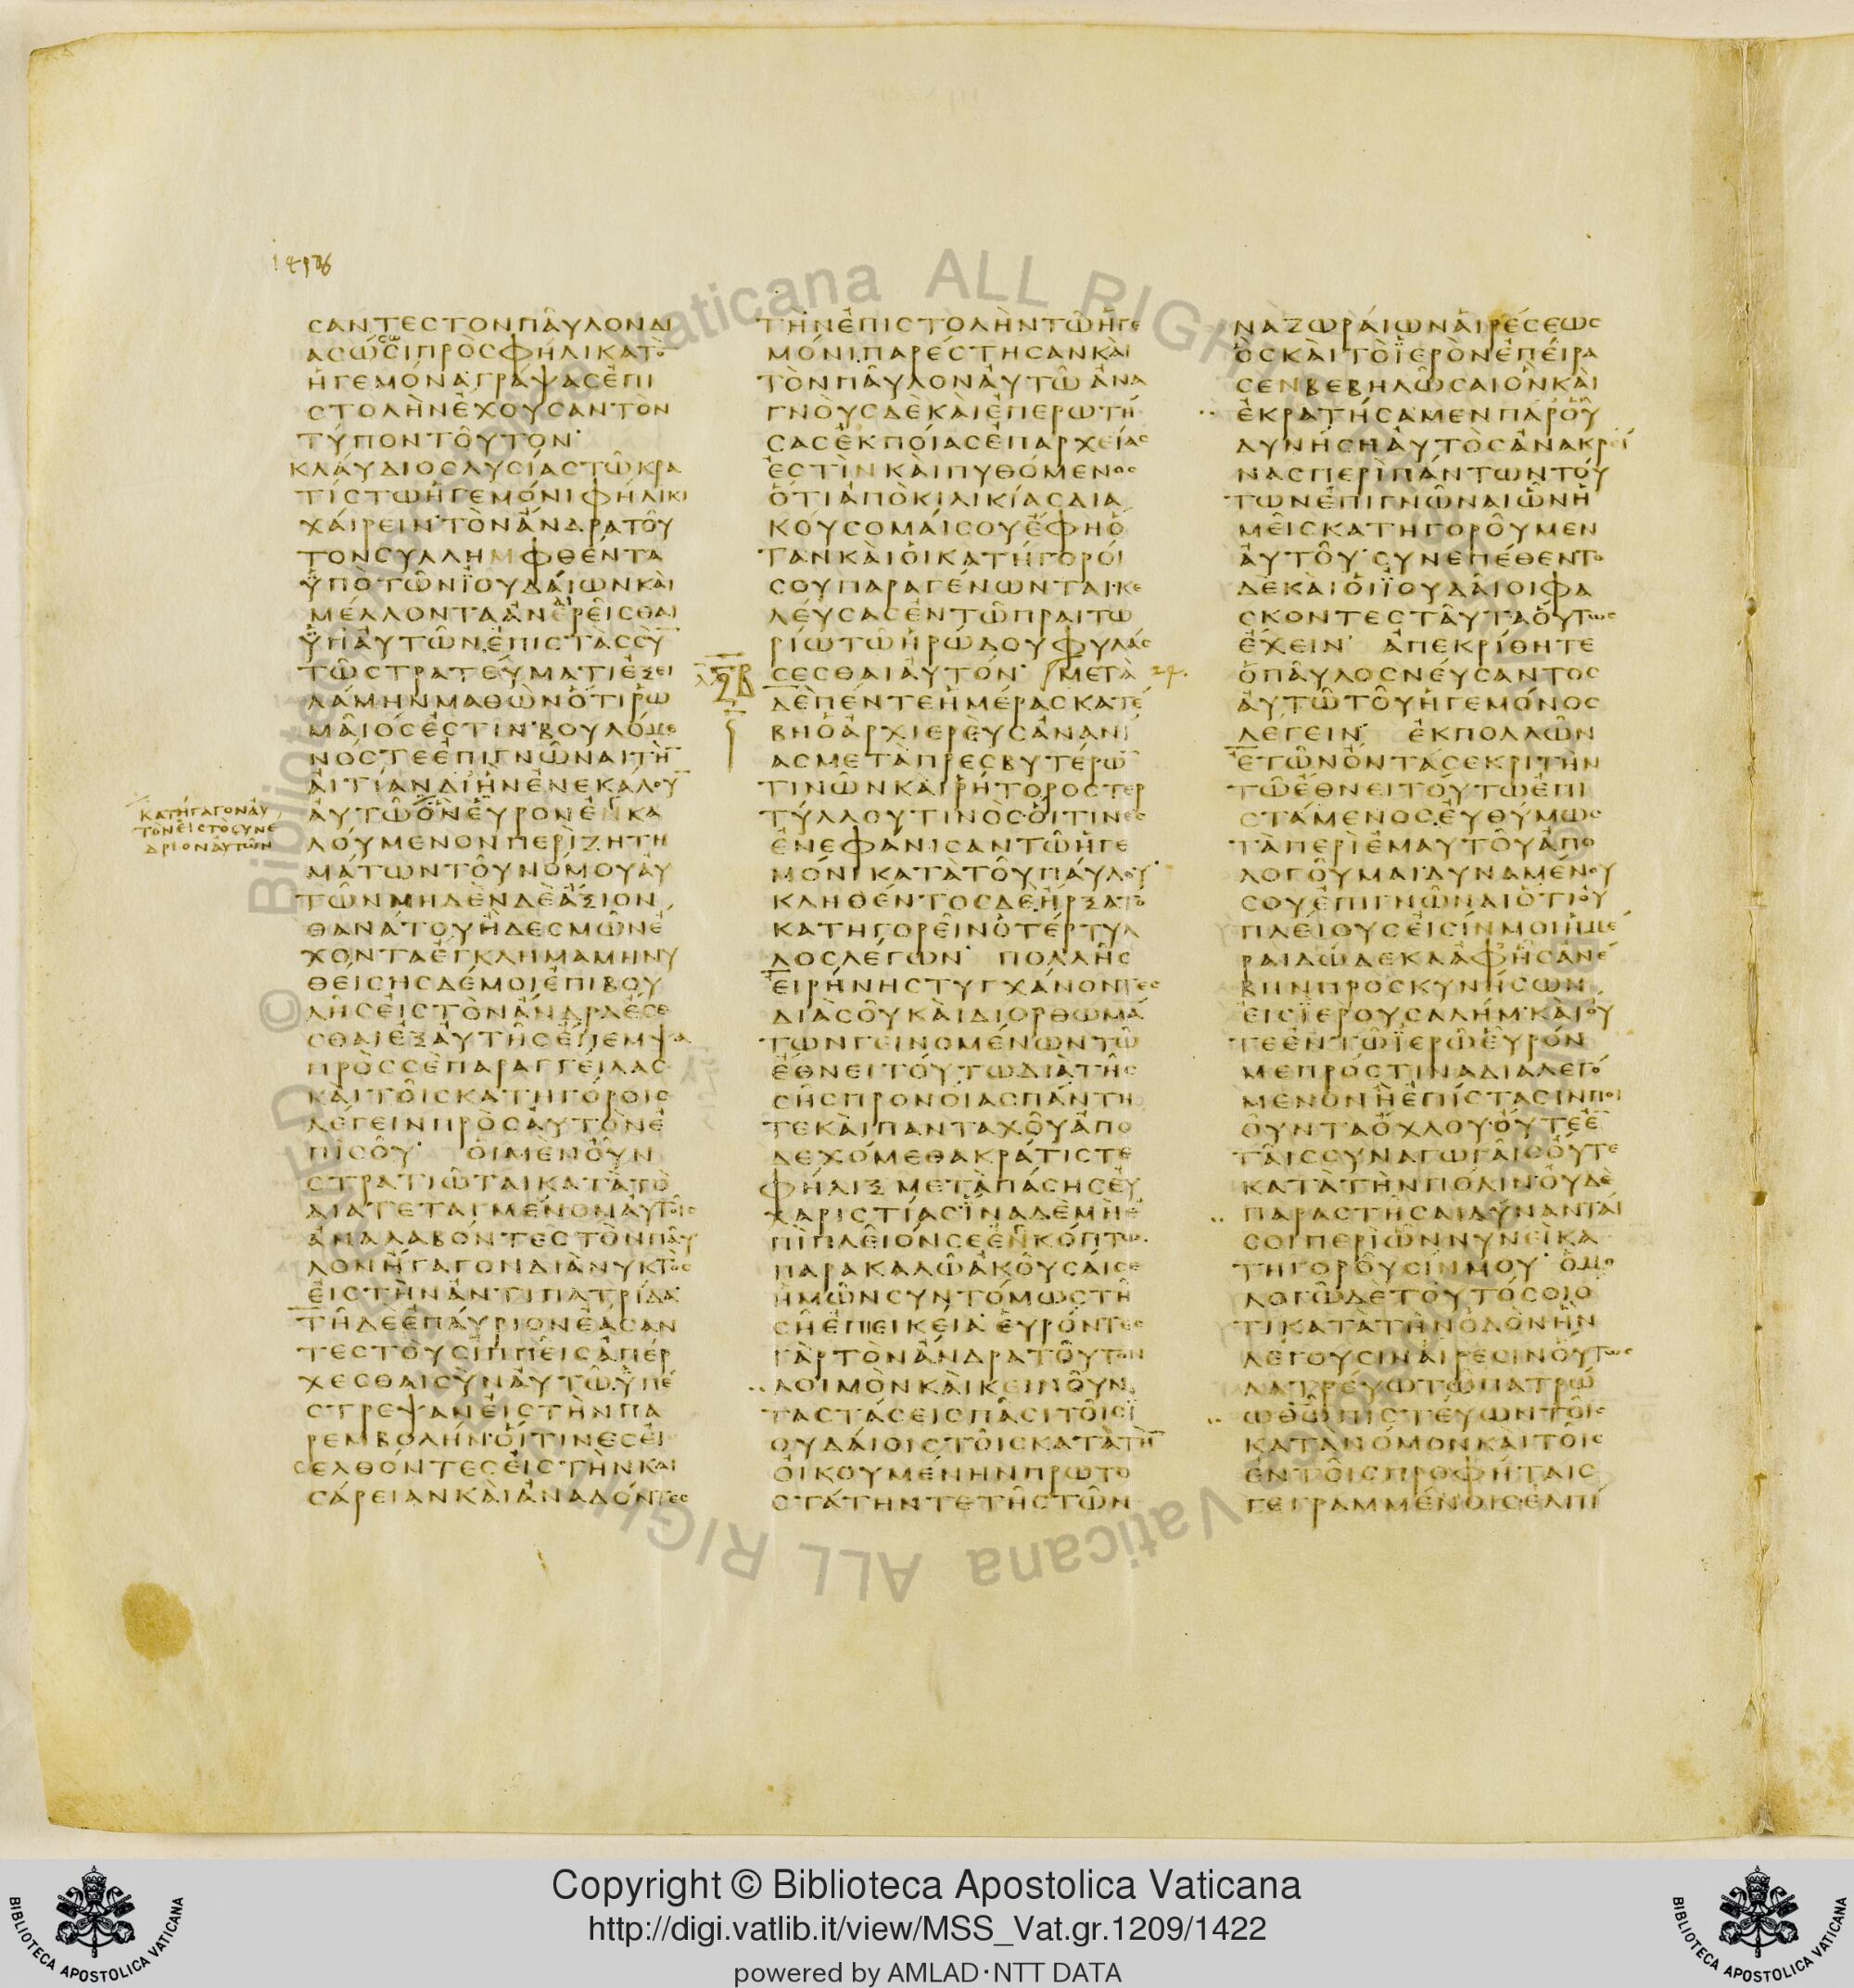 1426
ϹΑΝΤΕϹΤΟΝΠΑΥΛΟΝΔΙ
ΑϹΩϹΩϹΙΠΡΟϹΦΗΛΙΚΑΤΟ̅
ΗΓΕΜΟΝΑ·ΓΡΑΨΑϹΕΠΙ
ϹΤΟΛΗΝΕΧΟΥϹΑΝΤΟΝ
ΤΥΠΟΝΤΟΥΤΟΝ·
ΚΛΑΥΔΙΟϹΛΥϹΙΑϹΤΩΚΡΑ
ΤΙϹΤΩΗΓΕΜΟΝΙΦΗΛΙΚΙ
ΧΑΙΡΕΙΝ·ΤΟΝΑΝΔΡΑΤΟΥ
ΤΟΝϹΥΛΛΗΜΦΘΕΝΤΑ
ΫΠΟΤΩΝΪΟΥΔΑΙΩΝΚΑΙ
ΜΕΛΛΟΝΤΑΑΝΑΙΡΕΙϹΘΑΙ
ΫΠΑΥΤΩΝ·ΕΠΙϹΤΑϹϹΥ̅
ΤΩϹΤΡΑΤΕΥΜΑΤΙΕΞΕΙ
ΛΑΜΗΝΜΑΘΩΝΟΤΙΡΩ
ΜΑΙΟϹΕϹΤΙΝ·ΒΟΥΛΟΜΕ
ΝΟϹΤΕΕΠΙΓΝΩΝΑΙΤΗ̅
ΑΙΤΙΑΝΔΙΗΝΕΝΕΚΑΛΟΥ̅
ΑΥΤΩΟΝΕΥΡΟΝΕΝΚΑ
ΚΑΤΗΓΑΓΟΝΑΥ
ΤΟΝΕΙϹΤΟϹΥΝΕ
ΔΡΙΟΝΑΥΤΩΝ
ΛΟΥΜΕΝΟΝΠΕΡΙΖΗΤΗ
ΜΑΤΩΝΤΟΥΝΟΜΟΥΑΥ
ΤΩΝΜΗΔΕΝΔΕΑΞΙΟΝ
ΘΑΝΑΤΟΥΗΔΕϹΜΩΝΕ
ΧΟΝΤΑΕΓΚΛΗΜΑΜΗΝΥ
ΘΕΙϹΗϹΔΕΜΟΙΕΠΙΒΟΥ
ΛΗϹΕΙϹΤΟΝΑΝΔΡΑΕϹΕ
ϹΘΑΙΕΞΑΥΤΗϹΕΠΕΜΨΑ
ΠΡΟϹϹΕΠΑΡΑΓΓΕΙΛΑϹ
ΚΑΙΤΟΙϹΚΑΤΗΓΟΡΟΙϹ
ΛΕΓΕΙΝΠΡΟϹΑΥΤΟΝΕ
ΠΙϹΟΥ· ΟΙΜΕΝΟΥΝ
ϹΤΡΑΤΙΩΤΑΙΚΑΤΑΤΟ
ΔΙΑΤΕΤΑΓΜΕΝΟΝΑΥΤΟΙϹ
ΑΝΑΛΑΒΟΝΤΕϹΤΟΝΠΑΥ
ΛΟΝΗΓΑΓΟΝΔΙΑΝΥΚΤΟϹ
ΕΙϹΤΗΝΑΝΤΙΠΑΤΡΙΔΑ·
ΤΗΔΕΕΠΑΥΡΙΟΝΕΑϹΑΝ
ΤΕϹΤΟΥϹΙΠΠΕΙϹΑΠΕΡ
ΧΕϹΘΑΙϹΥΝΑΥΤΩ·ΫΠΕ
ϹΤΡΕΨΑΝΕΙϹΤΗΝΠΑ
ΡΕΜΒΟΛΗΝ·ΟΙΤΙΝΕϹΕΙ
ϹΕΛΘΟΝΤΕϹΕΙϹΤΗΝΚΑΙ
ϹΑΡΕΙΑΝΚΑΙΑΝΑΔΟΝΤΕϹ
ΤΗΝΕΠΙϹΤΟΛΗΝΤΩΗΓΕ
ΜΟΝΙ·ΠΑΡΕϹΤΗϹΑΝΚΑΙ
ΤΟΝΠΑΥΛΟΝΑΥΤΩ ΑΝΑ
ΓΝΟΥϹΔΕΚΑΙΕΠΕΡΩΤΗ
ϹΑϹΕΚΠΟΙΑϹΕΠΑΡΧΕΙΑϹ
ΕϹΤΙΝΚΑΙΠΥΘΟΜΕΝΟϹ
ΟΤΙΑΠΟΚΙΛΙΚΙΑϹΔΙΑ
ΚΟΥϹΟΜΑΙϹΟΥΕΦΗΟ
ΤΑΝΚΑΙΟΙΚΑΤΗΓΟΡΟΙ
ϹΟΥΠΑΡΑΓΕΝΩΝΤΑΙ·ΚΕ
ΛΕΥϹΑϹΕΝΤΩΠΡΑΙΤΩ
ΡΙΩΤΩΗΡΩΔΟΥΦΥΛΑϹ
ϹΕϹΘΑΙΑΥΤΟΝ· ΜΕΤΑ 24.
ΔΕΠΕΝΤΕΗΜΕΡΑϹΚΑΤΕ
ΒΗΟΑΡΧΙΕΡΕΥϹΑΝΑΝΙ
ΑϹΜΕΤΑΠΡΕϹΒΥΤΕΡΩ̅
ΤΙΝΩΝΚΑΙΡΗΤΟΡΟϹΤΕΡ
ΤΥΛΛΟΥΤΙΝΟϹΟΙΤΙΝΕϹ
ΕΝΕΦΑΝΙϹΑΝΤΩΗΓΕ
ΜΟΝΙΚΑΤΑΤΟΥΠΑΥΛΟΥ·
ΚΛΗΘΕΝΤΟϹΔΕΗΡΞΑΤΟ
ΚΑΤΗΓΟΡΕΙΝΟΤΕΡΤΥΛ
ΛΟϹΛΕΓΩΝ· ΠΟΛΛΗϹ
ΕΙΡΗΝΗϹΤΥΓΧΑΝΟΝΤΕϹ
ΔΙΑϹΟΥΚΑΙΔΙΟΡΘΩΜΑ
ΤΩΝΓΕΙΝΟΜΕΝΩΝΤΩ
ΕΘΝΕΙΤΟΥΤΩΔΙΑΤΗϹ
ϹΗϹΠΡΟΝΟΙΑϹΠΑΝΤΗ
ΤΕΚΑΙΠΑΝΤΑΧΟΥΑΠΟ
ΔΕΧΟΜΕΘΑΚΡΑΤΙϹΤΕ
ΦΗΛΙΞ ΜΕΤΑΠΑϹΗϹΕΥ
ΧΑΡΙϹΤΙΑϹ·ΪΝΑΔΕΜΗΕ
ΠΙΠΛΕΙΟΝϹΕΕΝΚΟΠΤΩ·
ΠΑΡΑΚΑΛΩΑΚΟΥϹΑΙϹΕ
ΗΜΩΝϹΥΝΤΟΜΩϹΤΗ
ϹΗΕΠΙΕΙΚΕΙΑ·ΕΥΡΟΝΤΕϹ
ΓΑΡΤΟΝΑΝΔΡΑΤΟΥΤΟΝ
ΛΟΙΜΟΝΚΑΙΚΕΙΝΟΥΝ
ΤΑϹΤΑϹΕΙϹΠΑϹΙΤΟΙϹΪ
ΟΥΔΑΙΟΙϹΤΟΙϹΚΑΤΑΤΗ̅
ΟΙΚΟΥΜΕΝΗΝΠΡΩΤΟ
ϹΤΑΤΗΝΤΕΤΗϹΤΩΝ
ΝΑΖΩΡΑΙΩΝΑΙΡΕϹΕΩϹ
ΟϹΚΑΙΤΟΪΕΡΟΝΕΠΕΙΡΑ
ϹΕΝΒΕΒΗΛΩϹΑΙΟΝΚΑΙ
ΕΚΡΑΤΗϹΑΜΕΝΠΑΡΟΥ
ΔΥΝΗϹΗΑΥΤΟϹΑΝΑΚΡΕΙ
ΝΑϹΠΕΡΙΠΑΝΤΩΝΤΟΥ
ΤΩΝΕΠΙΓΝΩΝΑΙΩΝΗ
ΜΕΙϹΚΑΤΗΓΟΡΟΥΜΕΝ
ΑΥΤΟΥ·ϹΥΝΕΠΕΘΕΝΤΟ
ΔΕΚΑΙΟΙΪΟΥΔΑΙΟΙΦΑ
ϹΚΟΝΤΕϹΤΑΥΤΑΟΥΤΩϹ
ΕΧΕΙΝ· ΑΠΕΚΡΙΘΗΤΕ
ΟΠΑΥΛΟϹΝΕΥϹΑΝΤΟϹ
ΑΥΤΩΤΟΥΗΓΕΜΟΝΟϹ
ΛΕΓΕΙΝ· ΕΚΠΟΛΛΩΝ
ΕΤΩΝΟΝΤΑϹΕΚΡΙΤΗΝ
ΤΩΕΘΝΕΙΤΟΥΤΩΕΠΙ
ϹΤΑΜΕΝΟϹ·ΕΥΘΥΜΩϹ
ΤΑΠΕΡΙΕΜΑΥΤΟΥΑΠΟ
ΛΟΓΟΥΜΑΙ·ΔΥΝΑΜΕΝΟΥ
ϹΟΥΕΠΙΓΝΩΝΑΙΟΤΙΟΥ
ΠΛΕΙΟΥϹΕΙϹΙΝΜΟΙΗΜΕ
ΡΑΙΔΩΔΕΚΑΑΦΗϹΑΝΕ
ΒΗΝΠΡΟϹΚΥΝΗϹΩΝ
ΕΙϹΪΕΡΟΥϹΑΛΗΜ·ΚΑΙΟΥ
ΤΕΕΝΤΩΪΕΡΩΕΥΡΟΝ
ΜΕΠΡΟϹΤΙΝΑΔΙΑΛΕΓΟ
ΜΕΝΟΝΗΕΠΙϹΤΑϹΙΝΠΟΙ
ΟΥΝΤΑΟΧΛΟΥ·ΟΥΤΕΕ̅
ΤΑΙϹϹΥΝΑΓΩΓΑΙϹΟΥΤΕ
ΚΑΤΑΤΗΝΠΟΛΙΝ·ΟΥΔΕ
ΠΑΡΑϹΤΗϹΑΙΔΥΝΑΝΤΑΙ
ϹΟΙΠΕΡΙΩΝΝΥΝΕΙΚΑ
ΤΗΓΟΡΟΥϹΙΝΜΟΥ· ΟΜΟ
ΛΟΓΩΔΕΤΟΥΤΟϹΟΙΟ
ΤΙΚΑΤΑΤΗΝΟΔΟΝΗΝ
ΛΕΓΟΥϹΙΝΑΙΡΕϹΙΝΟΥΤΩϹ
ΛΑΤΡΕΥΩΤΩΠΑΤΡΩ
ΩΘΩ̅ΠΙϹΤΕΥΩΝΤΟΙϹ
ΚΑΤΑΝΟΜΟΝΚΑΙΤΟΙϹ
ΕΝΤΟΙϹΠΡΟΦΗΤΑΙϹ
ΓΕΓΡΑΜΜΕΝΟΙϹ·ΕΛΠΙ
Copyright © Biblioteca Apostolica Vaticana
http://digi.vatlib.it/view/MSS_Vat.gr.1209/1422
powered by AMLAD·NTT DATA
BIBLIOTECA APOSTOLICA VATICANA
BIBLIOTECA APOSTOLICA VATICANA